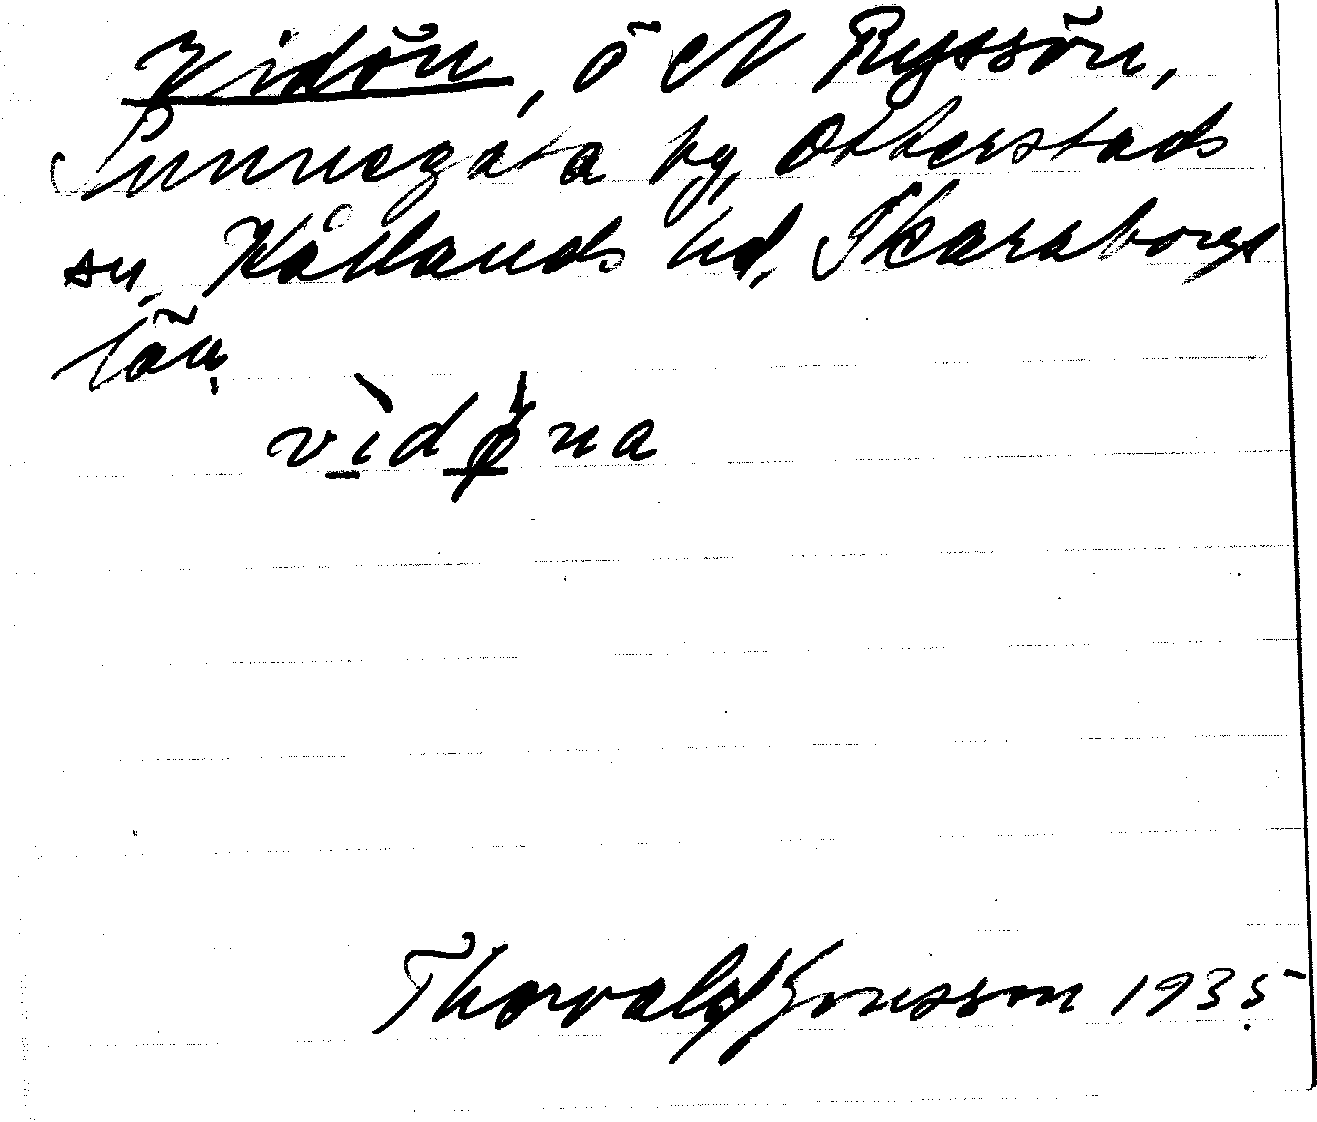 Vidön, ö N Ryssön,
Sunnegåta by, Otterstads
sn, Kållands hd, Skaraborgs
län.
vìdø̍na
Thorvald Jonsson 1935.